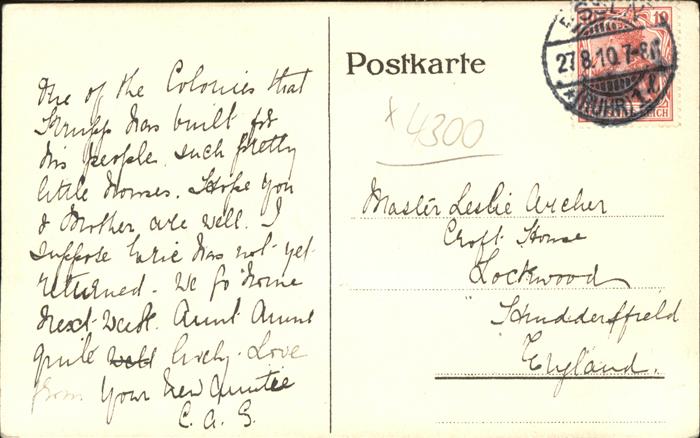 One of the Colonies that
Krupp has built for
his people such pretty
little houses. Hope you
& Mother are well. I
suppose Eric has not yet
returned. We go home
next week. Aunt Annie
quite lively. Love
from your new Auntie
C. A. G.
Postkarte
x 4300
Master Leslie Archer
Croft House
Lockwood
Huddersffield
England.
10
27.8.10.7-8N
(RUHR) 1 l
REICH